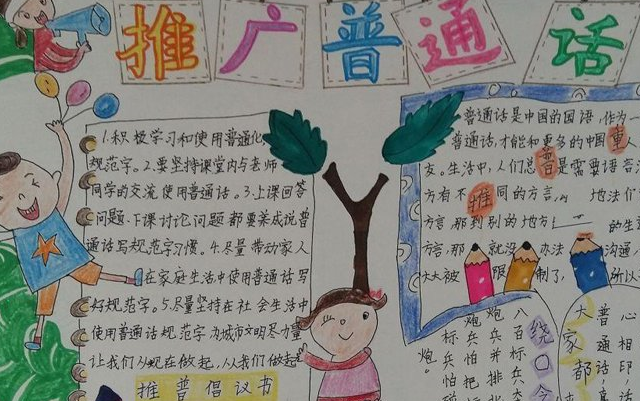 推广普通话
1.积极学习和使用普通化
规范字。2.要坚持课堂内与老师
同学的交流使用普通话。3.上课回答
问题、下课讨论问题都要养成说普
通话写规范字习惯。4.尽量带动家人
在家庭生活中使用普通话写
好规范字。5.尽量坚持在社会生活中
使用普通话规范字为城市文明尽力量
让我们从现在做起,从我们做起
推普倡议书
普通话是中国的国语,作为一
普通话,才能和更多的中国人
友。生活中,人们总是需要语言
方有不同的方言,地法们
方言,那到别的地方的生
方言,那就没办法沟通,
大大被限制了,所以
推
普
绕口令
八百标兵
炮兵并排北
炮兵怕把标
标兵怕碰
炮。
大家都
普通话,真
心相印,话